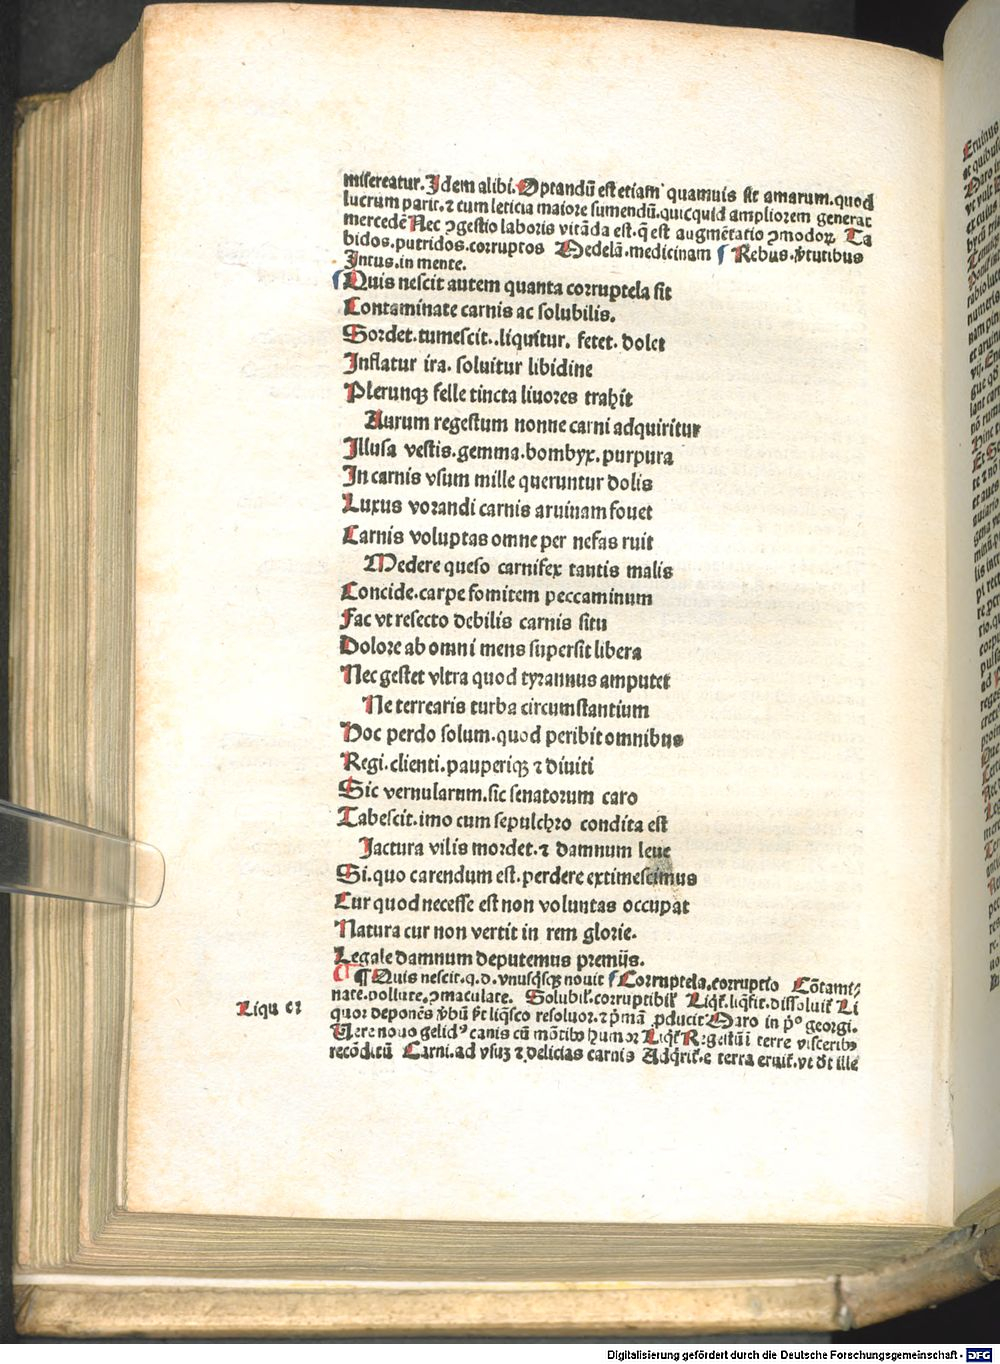 misereatur. Idem alibi. Optandū est etiam quamuis sit amarum. quod
lucrum parit. ⁊ cum leticia maiore sumendū. quicquid ampliorem generat
mercedē Nec ꝯgestio laboris vitāda est. q̄ est augmētatio ꝯmodoꝝ Ta
bidos. putridos. corruptos Medelā. medicinam Rebus. v̓tutibus
Intus. in mente.
Quis nescit autem quanta corruptela sit
Contaminate carnis ac solubilis.
Sordet. tumescit. .liquitur. fetet. dolet
Inflatur ira. soluitur libidine
Plerunqꝫ felle tincta liuores trahit
Aurum regestum nonne carni adquiritur
Illusa vestis. gemma. bombyx. purpura
In carnis vsum mille queruntur dolis
Luxus vorandi carnis aruinam fouet
Carnis voluptas omne per nefas ruit
Medere queso carnifex tantis malis
Concide. carpe fomitem peccaminum
Fac vt resecto debilis carnis situ
Dolore ab omni mens supersit libera
Nec gestet vltra quod tyrannus amputet
Ne terrearis turba circumstantium
Hoc perdo solum. quod peribit omnibus
Regi. clienti. pauperiqꝫ ⁊ diuiti
Sic vernularum. sic senatorum caro
Tabescit. imo cum sepulchro condita est
Iactura vilis mordet. ⁊ damnum leue
Si. quo carendum est. perdere extimescimus
Cur quod necesse est non voluntas occupat
Natura cur non vertit in rem glorie.
Legale damnum deputemus premijs.
¶ Quis nescit. q. d. vnusq̄sqꝫ nouit Corruptela. corruptio Cōtami⸗
nate. pollute. ꝯmaculate. Solubil̓. corruptibil̓ Liqt̓. liq̄fit. dissoluit̓ Li
quor deponēs v̓bū fit liq̄sco resoluor. ⁊ p̄mā ꝓducit Maro in p̄º georgi.
Liqu er
Vere nouo gelidꝰ canis cū mōtibꝰ humor Liqt̓ Regestū i terre visceribꝰ
recōditū Carni. ad vsuꝫ ⁊ delicias carnis Adq̄rit̓. e terra eruit̓. vt dt̓ ille